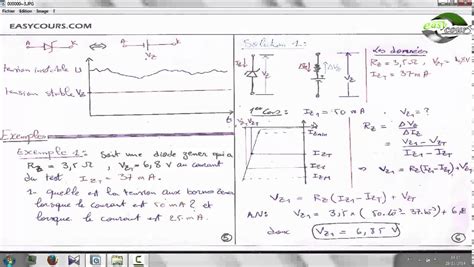 000000-3.JPG
Fichier Edition Image ?
EASYCOURS.COM
easy
A K ⇔ A K
Vz
tension instable U
tension stable Vz
t
Exemples
Exemple 1: soit une diode zener qui a
Rz = 3,5 Ω, Vz = 6,8 V au courant
du test Iz = 37 mA.
1- quelle est la tension aux bornes
lorsque le courant est 50 mA ? et
lorsque le courant est 25 mA.
5
Solution 1:
Iz Vz ΔVz
Les données
Rz = 3,5 Ω,
Iz = 37 mA
1er Cas: Iz1 = 50 mA, Vz1 = ?
Rz = ΔVz / ΔIz
= Vz1 - VzT / Iz1 - IzT
Vz1 - VzT = Rz (Iz1 - IzT)
Vz1 = Rz (Iz1 - IzT) + VzT
A.N: Vz1 = 3,5 × (50.10⁻³ - 37.10⁻³) + 6,8
donc Vz1 = 6,85 V
6